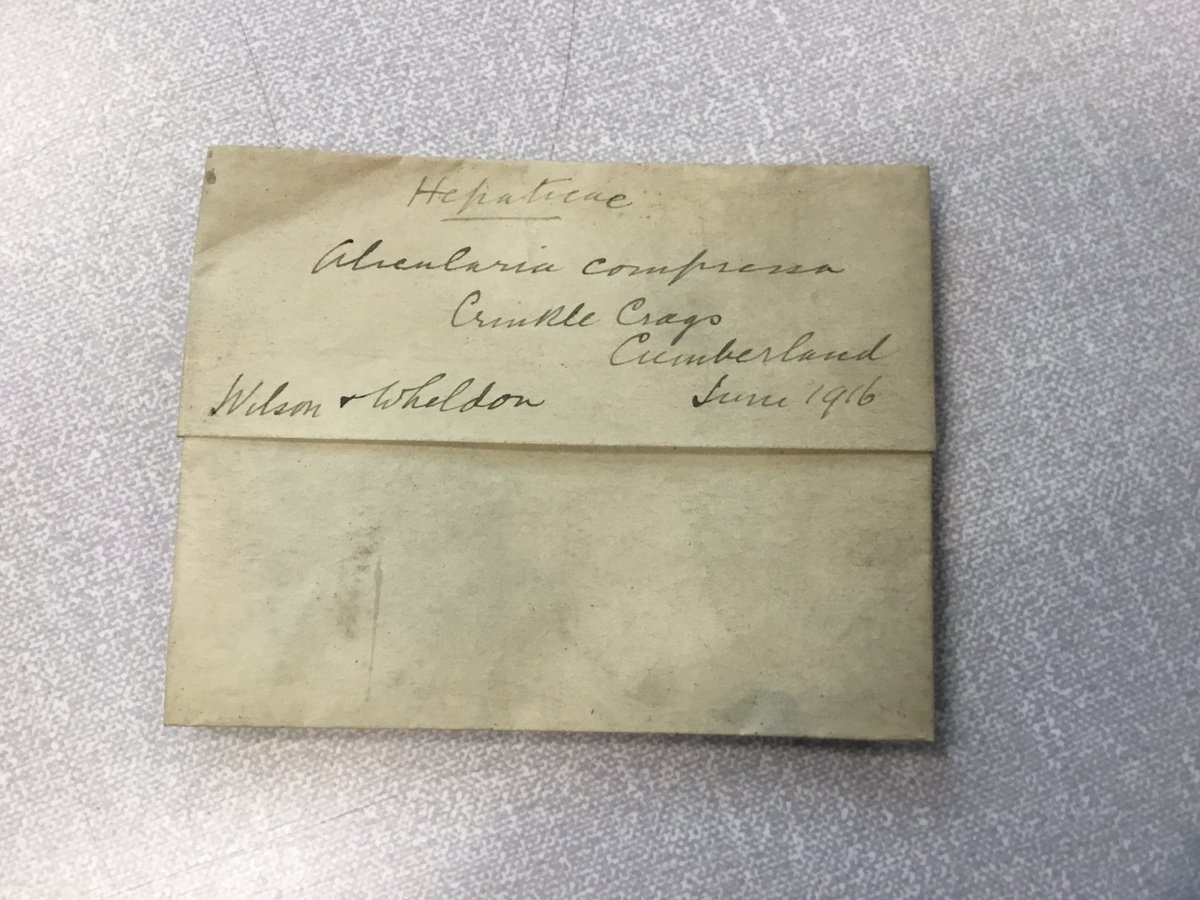 Hepaticae
Alicularia compressa
Crinkle Crags
Cumberland
Wilson & Wheldon June 1916